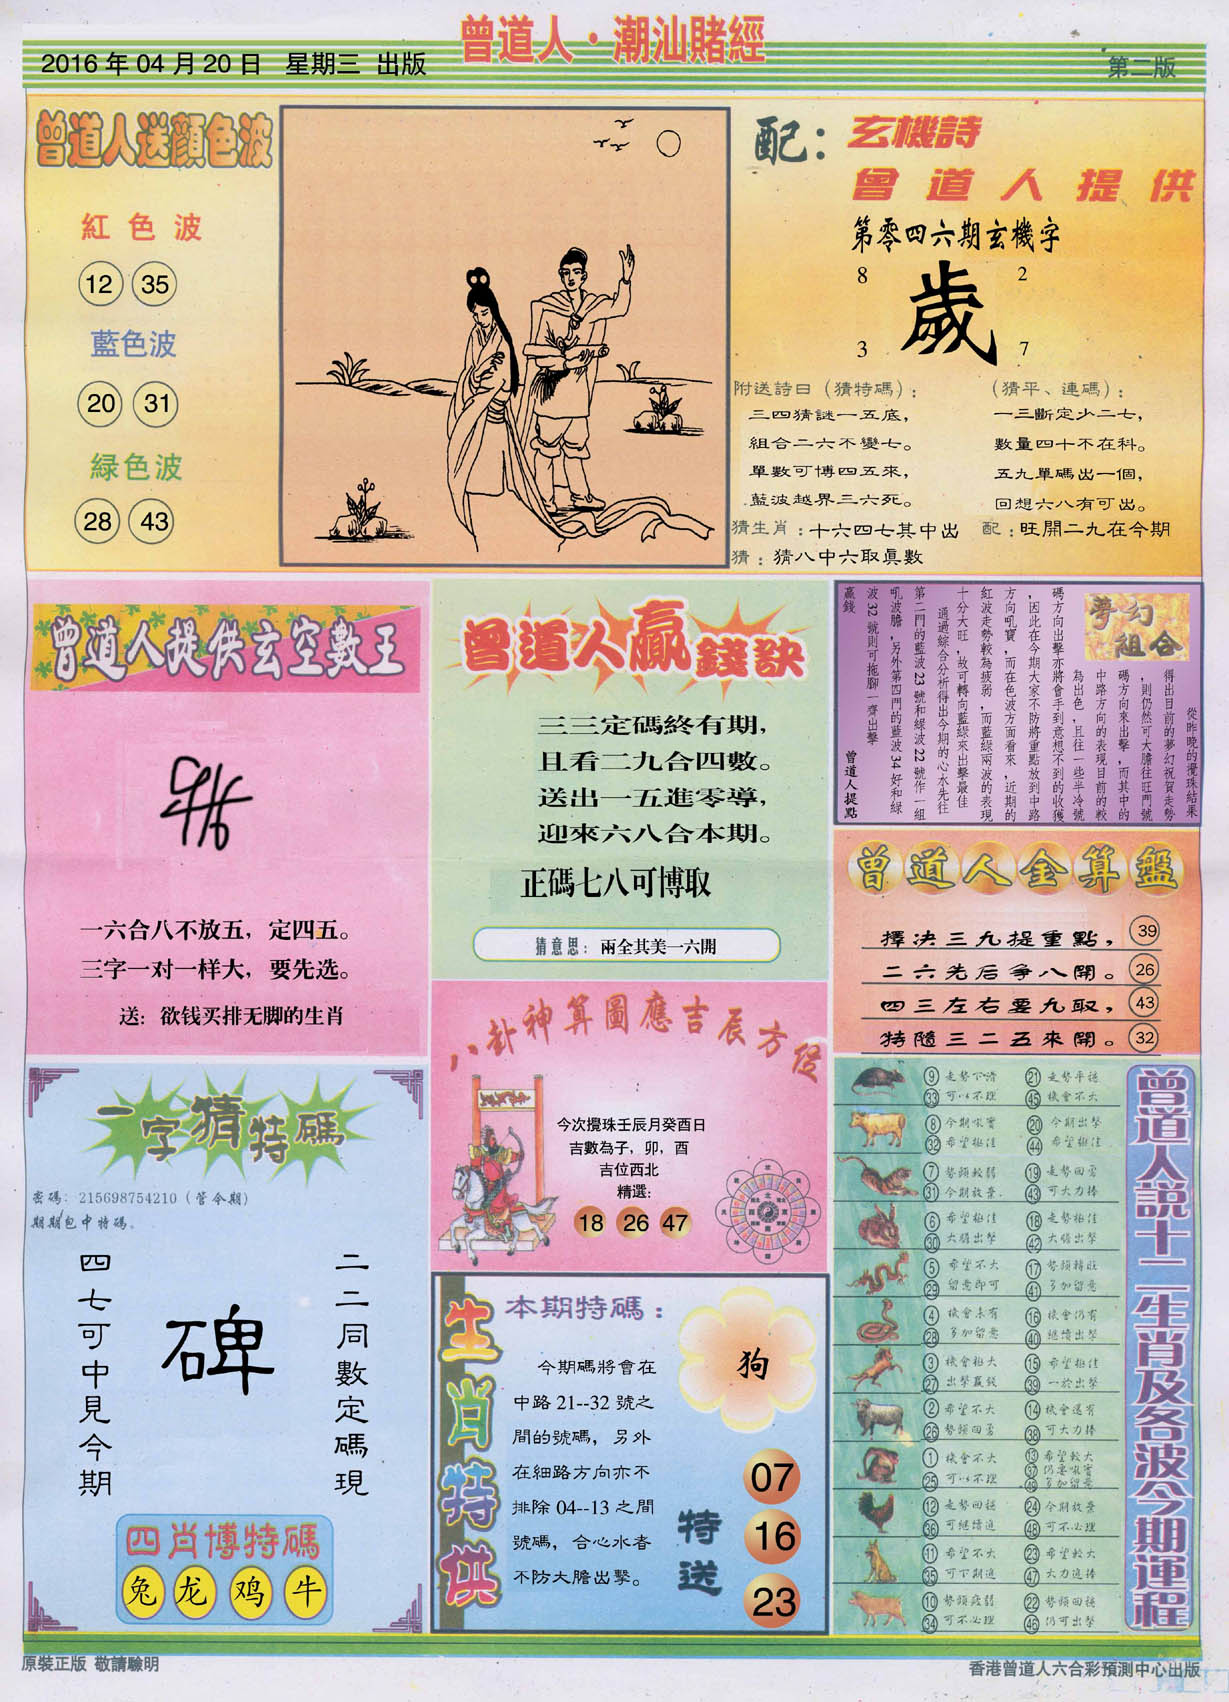 2016 年 04 月 20 日 星期三 出版
曾道人·潮汕賭經
第二版
曾道人送顏色波
紅色波
12 35
藍色波
20 31
緑色波
28 43
配：玄機詩
曾道人提供
第零四六期玄機字
8 2
歲
3 7
附送詩曰（猜特碼）：
三四猜謎一五底，
組合二六不變七。
單數可博四五來，
藍波越界三六死。
（猜平、連碼）：
一三斷定少二七，
數量四十不在科。
五九單碼出一個，
回想六八有可出。
猜生肖：十六四七其中出
配：旺開二九在今期
猜：猜八中六取眞數
曾道人提供玄空數王
一六合八不放五，定四五。
三字一对一样大，要先选。
送：欲钱买排无脚的生肖
曾道人贏錢訣
三三定碼終有期，
且看二九合四數。
送出一五進零導，
迎來六八合本期。
正碼七八可博取
猜意思：兩全其美一六開
夢幻組合
從昨晚的攪珠結果
得出目前的夢幻祝賀走勢
，則仍然可大膽往旺門號
碼方向來出擊，而其中的
中路方向的表現目前的較
為出色，且往一些半冷號
碼方向出擊亦將會手到意想不到的收獲
，因此在今期大家不防將重點放到中路
方向吼寶，而在色波方面看來，近期的
紅波走勢較為疲弱，而藍綠兩波的表現
十分大旺，故可轉向藍綠來出擊最佳
通過綜合分析得出今期的心水先往
第二門的藍波 23 號和綠波 22 號作一組
吼波膽，另外第四門的藍波 34 好和綠
波 32 號則可拖腳一齊出擊
贏錢
曾道人提點
曾道人金算盤
擇决三九提重點， 39
二六先后爭八開。 26
四三左右要九取， 43
特隨三二五來開。 32
八卦神算圖應吉辰方位
今次攪珠壬辰月癸酉日
吉數為子，卯，酉
吉位西北
精選：
18 26 47
一字猜特碼
密碼：215698754210（管今期）
期期包中特碼。
二二同數定碼現
碑
四七可中見今期
四肖博特碼
兔 龙 鸡 牛
生肖特供
本期特碼：
狗
今期碼將會在
中路 21--32 號之
間的號碼，另外
在細路方向亦不
排除 04--13 之間
號碼，合心水者
不防大膽出擊。
特送
07
16
23
曾道人説十二生肖及各波今期運程
9 走勢下滑 21 走勢平穩
33 可以不理 45 機會不大
8 今期吼實 20 今期出擊
32 希望極佳 44 希望極佳
7 勢頭較弱 19 走勢回勇
31 今期放棄 43 可大力捧
6 希望極佳 18 走勢極佳
30 大膽出擊 42 大膽出擊
5 希望不大 17 勢頭特旺
29 留意即可 41 多加留意
4 機會未有 16 機會仍有
28 多加留意 40 繼續出擊
3 機會極大 15 希望極佳
27 出擊贏錢 39 一於出擊
2 希望不大 14 機會還有
26 勢頭回勇 38 可大力捧
1 機會不大 13 希望較大
25 可以不理 37 仍要吼實
49 多加留意
12 走勢回穩 24 今期放棄
36 可繼續追 48 可不必理
11 希望不大 23 希望較大
35 可下期追 47 大力追捧
10 勢頭疲弱 22 勢頭回穩
34 可不必理 46 仍可出擊
原裝正版 敬請驗明
香港曾道人六合彩預測中心出版